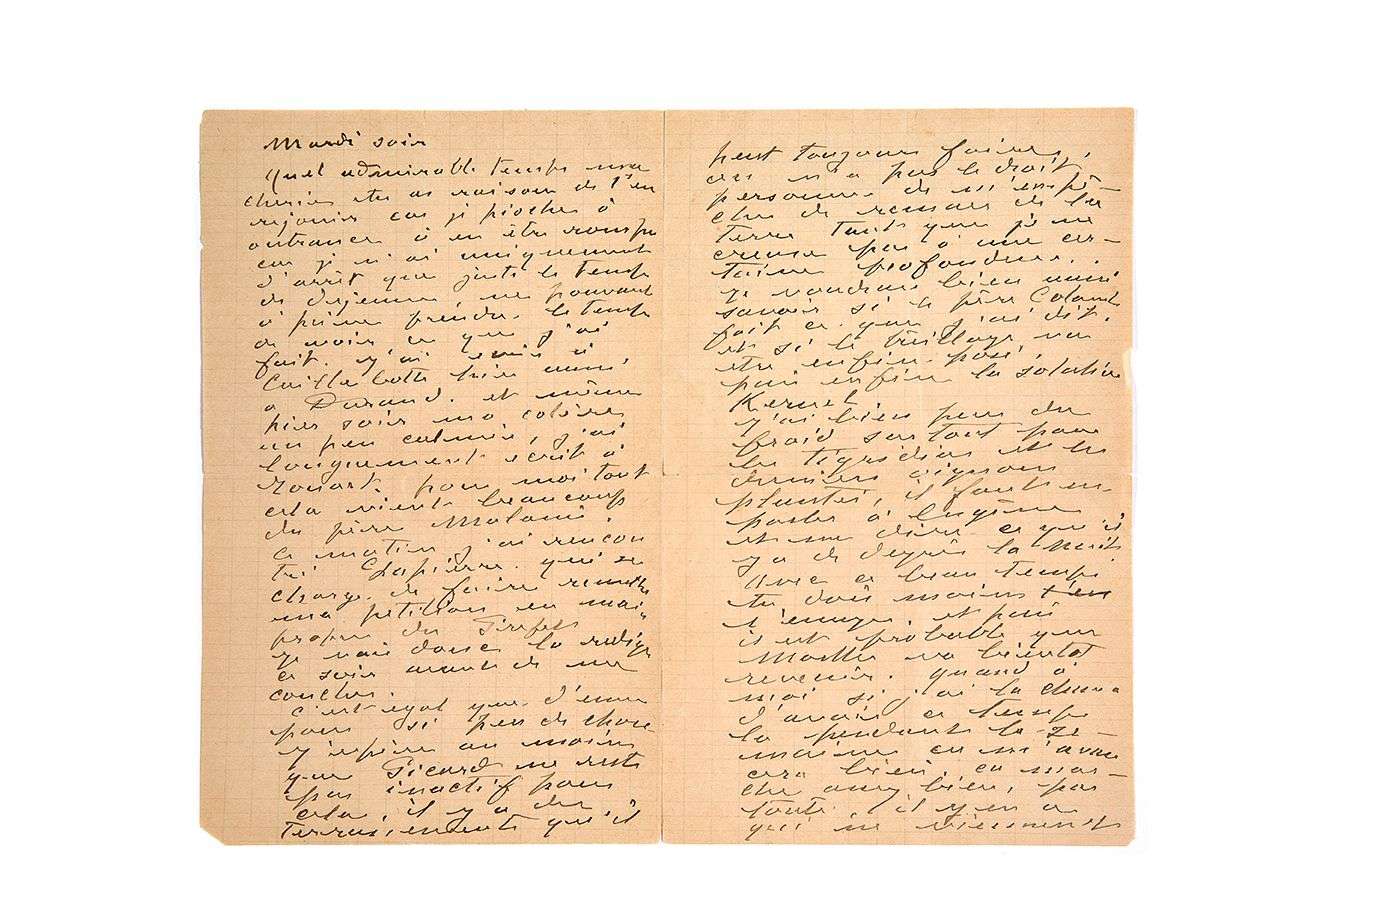 Mardi soir
Quel admirable temps ma
cherie et tu as raison de t'en
rejouir car je pioche à
outrance à en être rompu
car je n'ai uniquement
d'arrêt que juste le temps
de dejeuner, ne pouvant
à peine prendre le temps
de voir ce que j'ai
fait. J'ai ecrit à
Caillebotte hier aussi
a Durand. et même
hier soir ma colère
un peu calmée, j'ai
longuement ecrit à
Rouart. pour moi tout
cela vient beaucoup
du père
ce matin j'ai rencon
tré Lapierre. qui se
charge de faire remettre
ma petition en main
propre du Prefet
je vais donc la rediger
ce soir avant de me
coucher.
C'est egal que d'ennuis
pour si peu de chose
J'espère au moins
que Picard ne reste
pas inactif pour
cela, il y a des
terrassements qu'il
peut toujours faire,
car n'a pas le droit
personne de m'empê-
cher de remuer de la
terre tant que je ne
creuse pas à une cer-
taine profondeur.
je voudrais bien aussi
savoir si le père Colomb
fait ce que j'ai dit.
et si le treillage va
être enfin posé.
puis enfin la solution
J'ai bien peur du
froid surtout pour
les tigridias et les
derniers oignons
plantés, il faut en
parler à Eugène
et me dire ce qu'il
y a de degrés la nuit
Avec ce beau temps
tu dois moins t'en
t'ennuyer et puis
il est probable que
Marthe va bientôt
revenir. quand à
moi si j'ai la chance
d'avoir ce temps
là pendant la se-
maine ça m'avan
cera bien, ça mar-
che assez bien, pas
toute il y en a
qui ne viennent